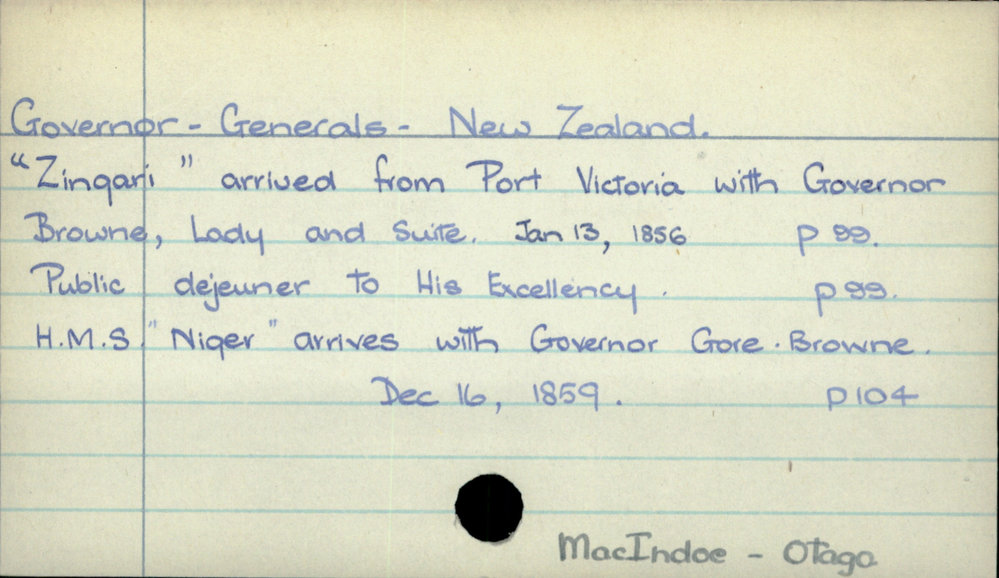 Governor - Generals - New Zealand.
"Zingari" arrived from Port Victoria with Governor
Browne, Lady and Suite. Jan 13, 1856 p 99.
Public dejeuner to His Excellency. p 99.
H.M.S. "Niger" arrives with Governor Gore. Browne.
Dec 16, 1859. p 104
MacIndoe - Otago